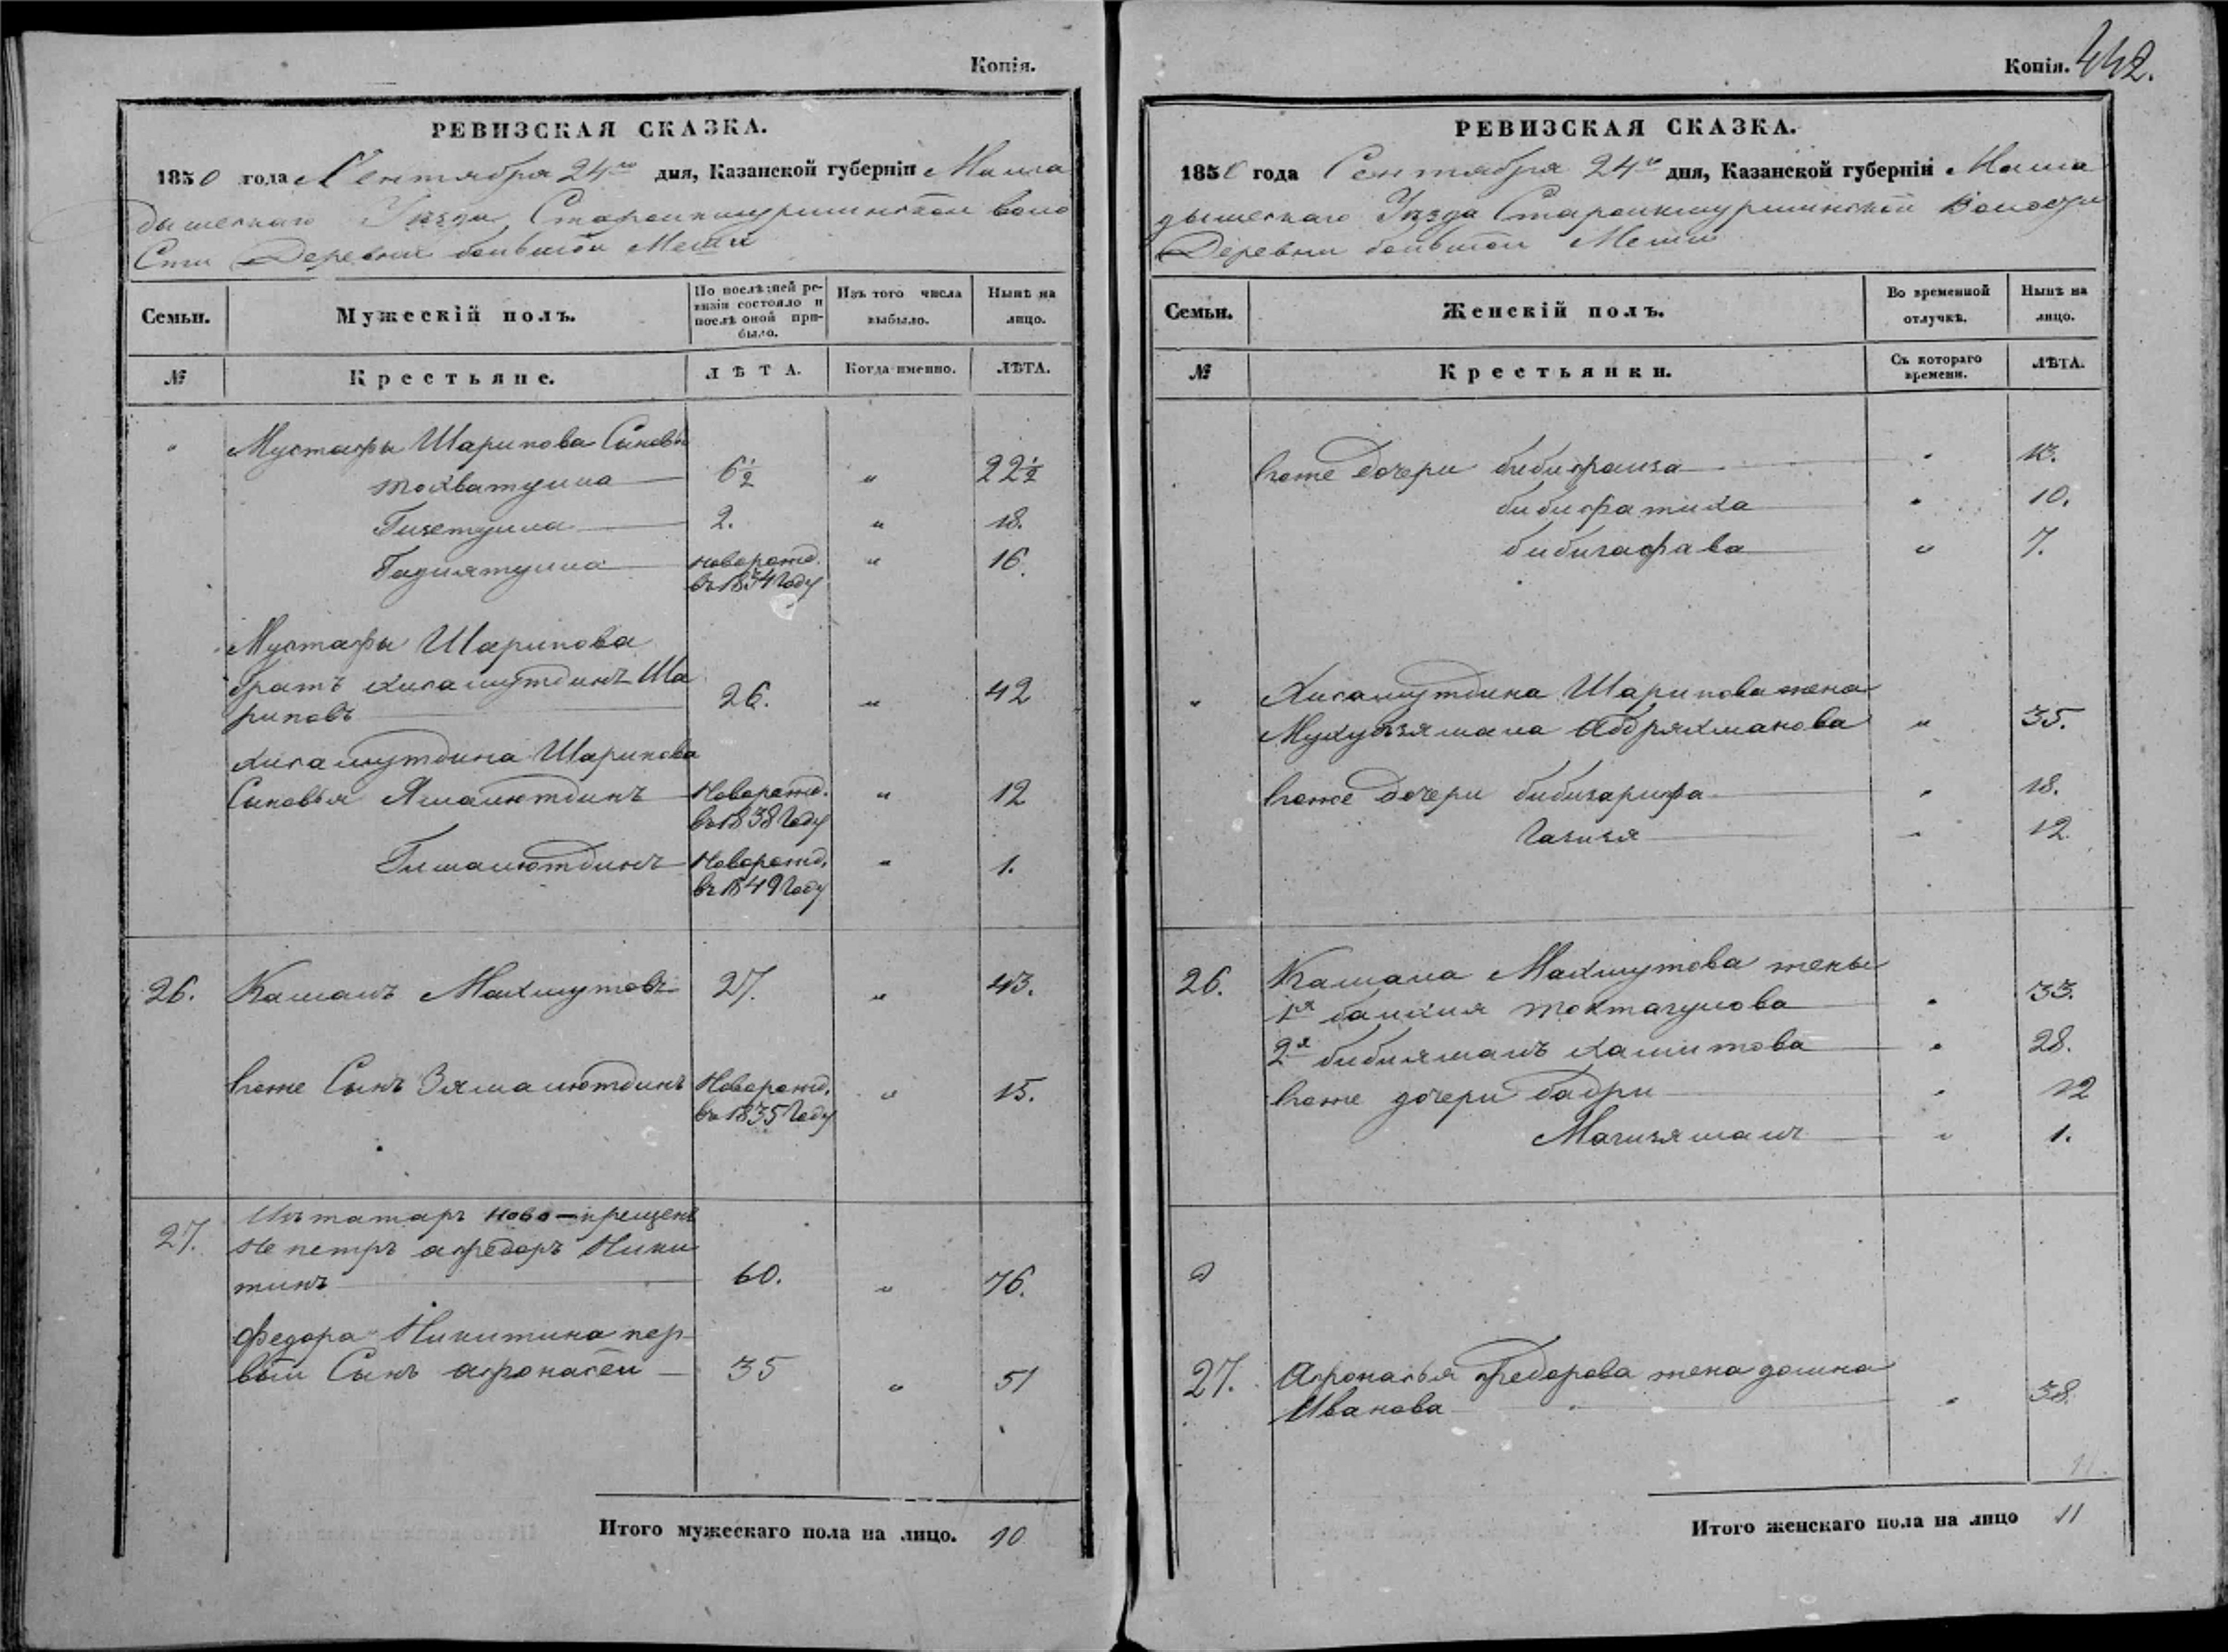 Копія.
РЕВИЗСКАЯ СКАЗКА.
1850 года Сентября 24го дня, Казанской губерніи Мама
дышскаго Уѣзда Староикшурминской воло
сти Деревни большой Меши
Семьи.
Мужескій полъ.
По послѣдней ре-
визіи состояло и
послѣ оной при-
было.
Изъ того числа
выбыло.
Нынѣ на
лицо.
№
Крестьяне.
ЛѢТА.
Когда именно.
ЛѢТА.
Мустафы Шарипова Сыновья
Тохватулла 6½ " 22½
Гизетулла 2. " 18.
Гадиятулла новорожд. " 16.
въ 1834 Году
Мустафы Шарипова
братъ хисамутдинъ Ша
риповъ 26. " 42
хисамутдина Шарипова
Сыновья Ямалютдинъ Новорожд. " 12
въ 1838 Году
Гималютдинъ Новорожд. " 1.
въ 1849 Году
26. Камалъ Махмутовъ 27. " 43.
Его же Сынъ Зямалютдинъ Новорожд. " 15.
въ 1835 Году
27. Изъ татаръ ново-крещены
Не петръ афедоръ Ники
тинъ 60. " 76.
Федора Никитина пер-
вый Сынъ афонасей 35 " 51
Итого мужескаго пола на лицо. 10
Копія. 442.
РЕВИЗСКАЯ СКАЗКА.
1850 года Сентября 24го дня, Казанской губерніи Мама
дышскаго Уѣзда Староикшурминской Волости
Деревни большой Меши
Семьи.
Женскій полъ.
Во временной
отлучкѣ.
Нынѣ на
лицо.
№
Крестьянки.
Съ котораго
времени.
ЛѢТА.
Его же Дочери бибифаиза " 13.
бибифатиха " 10.
бибигафава " 7.
" Хисамутдина Шарипова жена
Мухубзямала Абдряхманова " 35.
Его же Дочери бибизарифа " 18.
Газизя " 12
26. Камала Махмутова жены
1я балхия токтагулова " 33.
2я бибиямалъ хамитова " 28.
Его же дочери бадри " 12
Магизямалъ " 1.
27. Афонасья Федорова жена домна
Иванова " 38.
11.
Итого женскаго пола на лицо 11